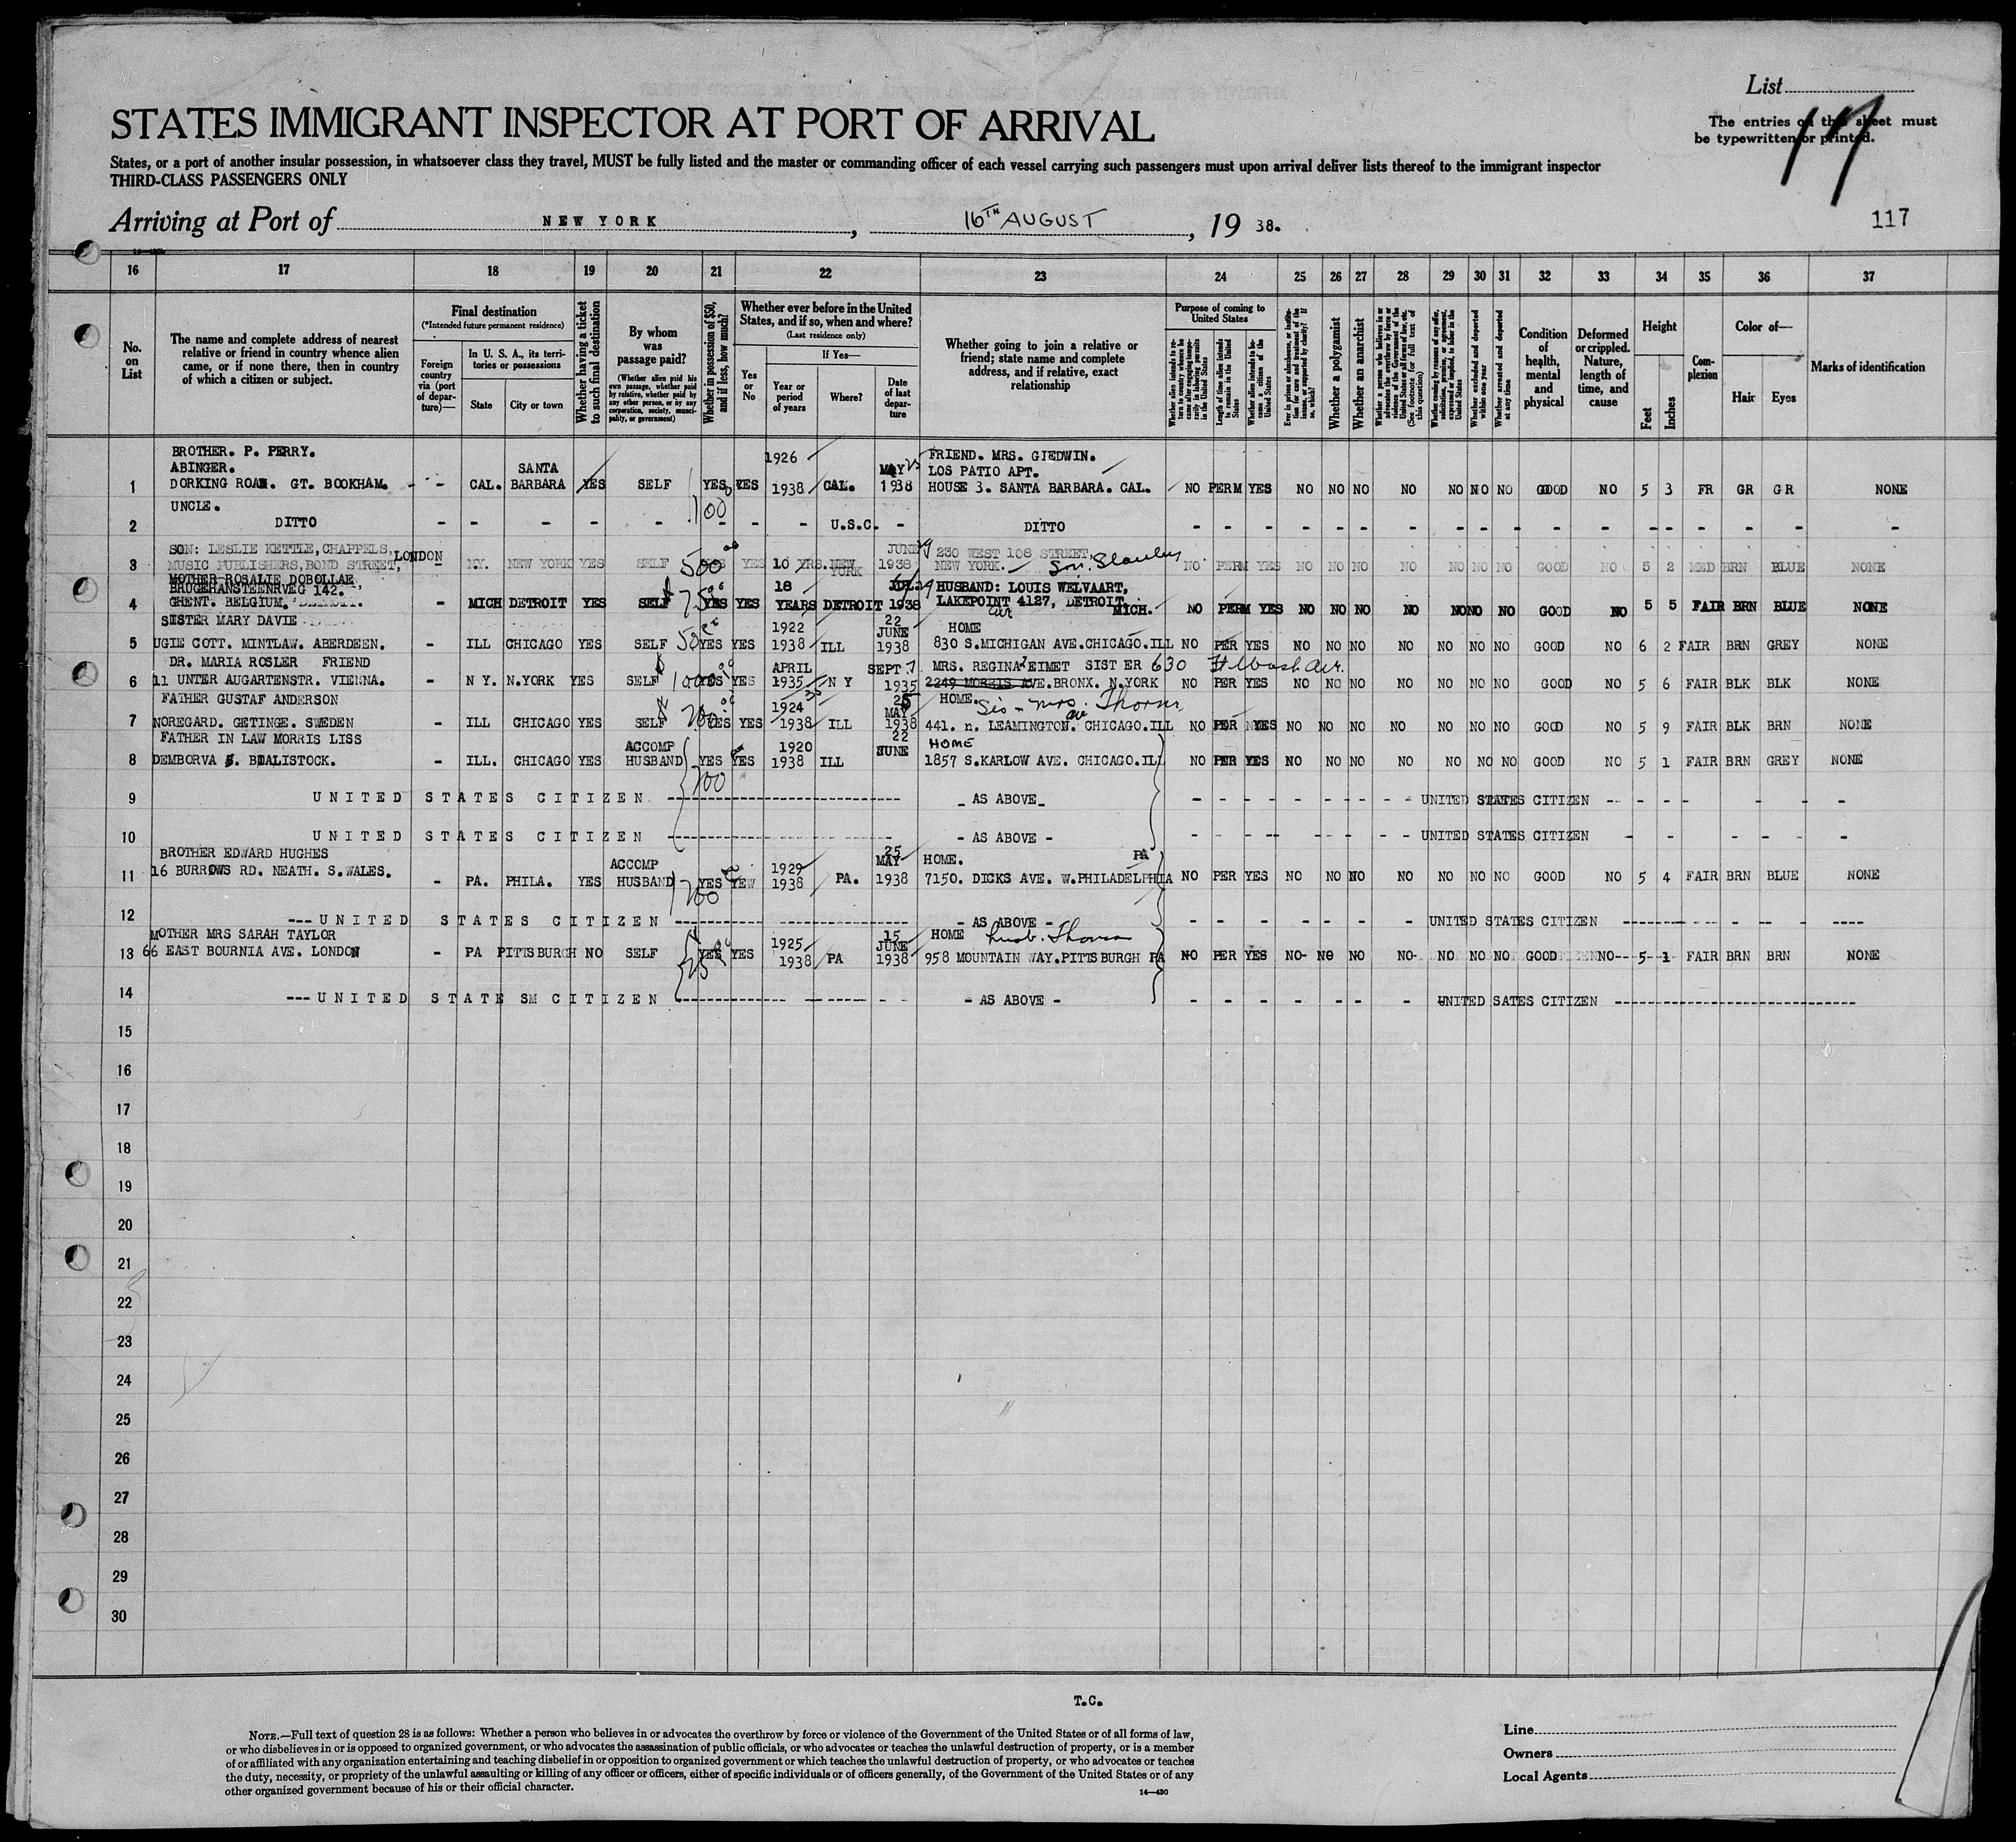 List
17
The entries on this sheet must
be typewritten or printed.
STATES IMMIGRANT INSPECTOR AT PORT OF ARRIVAL
States, or a port of another insular possession, in whatsoever class they travel, MUST be fully listed and the master or commanding officer of each vessel carrying such passengers must upon arrival deliver lists thereof to the immigrant inspector
THIRD-CLASS PASSENGERS ONLY
Arriving at Port of NEW YORK, 16TH AUGUST, 19 38.
117
16 17 18 19 20 21 22 23 24 25 26 27 28 29 30 31 32 33 34 35 36 37
No. on List
The name and complete address of nearest relative or friend in country whence alien came, or if none there, then in country of which a citizen or subject.
Final destination
(*Intended future permanent residence)
Foreign country via (port of departure)—
In U. S. A., its territories or possessions
State
City or town
Whether having a ticket to such final destination
By whom was passage paid?
(Whether alien paid his own passage, whether paid by relative, whether paid by any other person, or by any corporation, society, municipality, or government)
Whether in possession of $50, and if less, how much?
Whether ever before in the United States, and if so, when and where?
(Last residence only)
Yes or No
If Yes—
Year or period of years
Where?
Date of last departure
Whether going to join a relative or friend; state name and complete address, and if relative, exact relationship
Purpose of coming to United States
Length of time alien intends to remain in the United States
Whether alien intends to become a citizen of the United States
Whether a polygamist
Whether an anarchist
Whether excluded and deported within one year
Whether arrested and deported at any time
Condition of health, mental and physical
Deformed or crippled. Nature, length of time, and cause
Height
Feet
Inches
Complexion
Color of—
Hair
Eyes
Marks of identification
BROTHER. P. PERRY. 1926 FRIEND. MRS. GIEDWIN.
ABINGER. SANTA MAY 25 LOS PATIO APT.
1 DORKING ROAD. GT. BOOKHAM. - - CAL. BARBARA YES SELF YES YES 1938 CAL. 1938 HOUSE 3. SANTA BARBARA. CAL. NO PERM YES NO NO NO NO NO NO NO GOOD NO 5 3 FR GR GR NONE
UNCLE. 100
2 DITTO - - - - - - - - U.S.C. - DITTO - - - - - - - - - - - - - - - - - -
SON: LESLIE KETTLE, CHAPPELS, LONDON JUNE 29 230 WEST 108 STREET,
3 MUSIC PUBLISHERS, BOND STREET, - NY. NEW YORK YES SELF 500 YES YES 10 YRS. NEW YORK 1938 NEW YORK. Son. Stanley NO PERM YES NO NO NO NO NO NO NO GOOD NO 5 2 MED BRN BLUE NONE
MOTHER ROSALIE DOBOLLAE
BRUGEHANSTEENRVEG 142. 18 HUSBAND: LOUIS WELVAART,
4 GHENT. BELGIUM. - MICH DETROIT YES SELF 75 YES YES YEARS DETROIT 1938 LAKEPOINT 4127, DETROIT, MICH. NO PERM YES NO NO NO NO NO NO NO GOOD NO 5 5 FAIR BRN BLUE NONE
SISTER MARY DAVIE 1922 22 JUNE HOME
5 UGIE COTT. MINTLAW. ABERDEEN. - ILL CHICAGO YES SELF 50 YES YES 1938 ILL 1938 830 S.MICHIGAN AVE.CHICAGO.ILL NO PER YES NO NO NO NO NO NO NO GOOD NO 6 2 FAIR BRN GREY NONE
DR. MARIA ROSLER FRIEND APRIL SEPT 7 MRS. REGINA ZEIMET SISTER 630
6 11 UNTER AUGARTENSTR. VIENNA. - N Y. N.YORK YES SELF 1000 YES YES 1935 N Y 1935 2249 MORRIS AVE.BRONX. N.YORK NO PER YES NO NO NO NO NO NO NO GOOD NO 5 6 FAIR BLK BLK NONE
FATHER GUSTAF ANDERSON 1924 25 MAY HOME. Sis - Mrs. Thorin
7 NOREGARD. GETINGE. SWEDEN - ILL CHICAGO YES SELF 200 YES YES 1938 ILL 1938 441. n. LEAMINGTON. av CHICAGO.ILL NO PER YES NO NO NO NO NO NO NO GOOD NO 5 9 FAIR BLK BRN NONE
FATHER IN LAW MORRIS LISS ACCOMP 1920 22 JUNE HOME
8 DEMBORVA 5. BIALISTOCK. - ILL. CHICAGO YES HUSBAND YES YES 1938 ILL 1857 S.KARLOW AVE. CHICAGO.ILL NO PER YES NO NO NO NO NO NO NO GOOD NO 5 1 FAIR BRN GREY NONE
200
9 UNITED STATES CITIZEN - AS ABOVE - UNITED STATES CITIZEN
10 UNITED STATES CITIZEN - AS ABOVE - UNITED STATES CITIZEN
BROTHER EDWARD HUGHES ACCOMP 1929 25 MAY HOME. PA
11 16 BURROWS RD. NEATH. S.WALES. - PA. PHILA. YES HUSBAND YES YEW 1938 PA. 1938 7150. DICKS AVE. W.PHILADELPHIA NO PER YES NO NO NO NO NO NO NO GOOD NO 5 4 FAIR BRN BLUE NONE
200
12 ---UNITED STATES CITIZEN - AS ABOVE - UNITED STATES CITIZEN
MOTHER MRS SARAH TAYLOR 1925 15 JUNE HOME husb. Thomas
13 66 EAST BOURNIA AVE. LONDON - PA PITTSBURGH NO SELF YES YES 1938 PA 1938 958 MOUNTAIN WAY.PITTSBURGH PA NO PER YES NO NO NO NO NO NO NO GOOD NO 5 1 FAIR BRN BRN NONE
25
14 ---UNITED STATE SM CITIZEN - AS ABOVE - UNITED SATES CITIZEN
15
16
17
18
19
20
21
22
23
24
25
26
27
28
29
30
T.C.
NOTE.—Full text of question 28 is as follows: Whether a person who believes in or advocates the overthrow by force or violence of the Government of the United States or of all forms of law,
or who disbelieves in or is opposed to organized government, or who advocates the assassination of public officials, or who advocates or teaches the unlawful destruction of property, or is a member
of or affiliated with any organization entertaining and teaching disbelief in or opposition to organized government or which teaches the unlawful destruction of property, or who advocates or teaches
the duty, necessity, or propriety of the unlawful assaulting or killing of any officer or officers, either of specific individuals or of officers generally, of the Government of the United States or of any
other organized government because of his or their official character.
14—430
Line
Owners
Local Agents